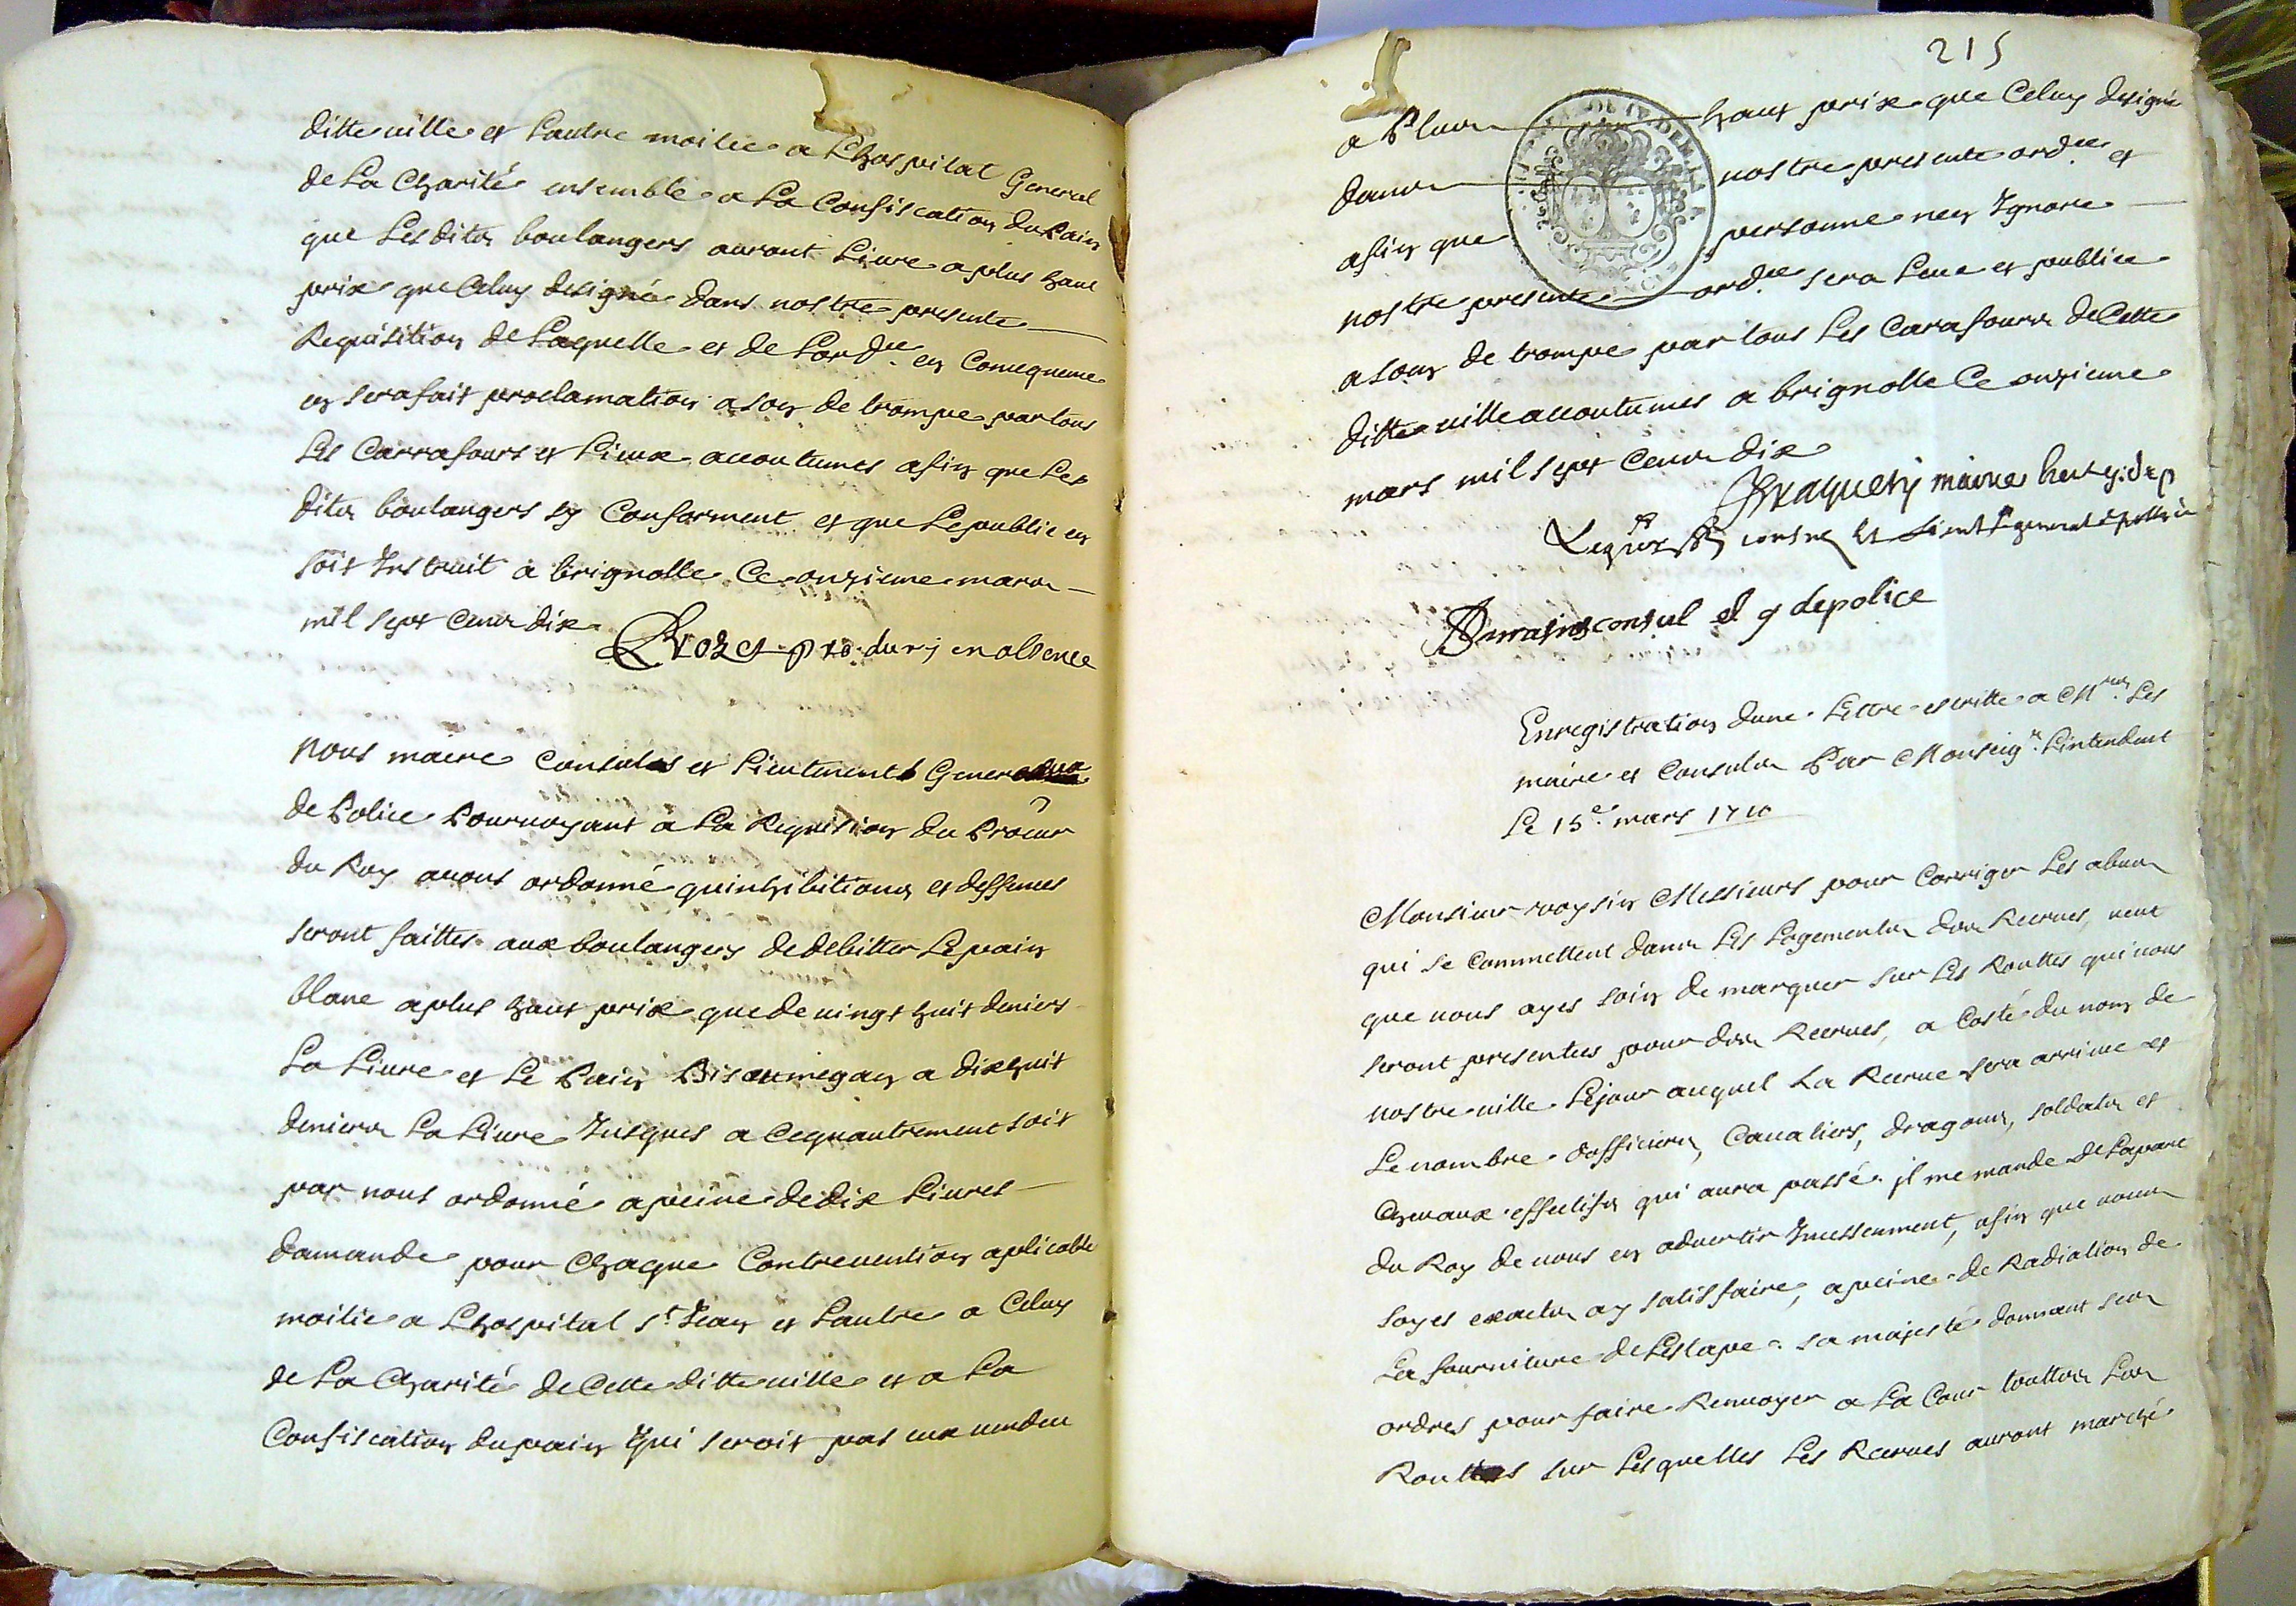 ditte ville et Lautre moitie a Lhospital General
de La Charité ensemble a La Confiscation du Pain
que Lesdits boulangers auront Livre a plus haut
prix que Celuy designé dans nostre presente
Requisition de Laquelle et de Lord.ce en Consequence
en sera fait proclamation a son de trompe par tous
Les Carrafours et Lieux accoutumes afin que Les
dits boulangers sy Conforment et que Le public en
soit Instruit a brignolle Ce onzieme mars
mil sept Cens dix
Crozet pro. du roy en absence
Nous maire Consuls et Lieutenents Generaux
de Police Pourvoyant a La Requisition du Procur
du Roy avons ordonné quinhibitions et deffences
seront faittes aux boulangers de debitter Le pain
blanc a plus haut prix que de vingt huit deniers
La Livre et Le Pain Bis a dix huit
deniers La Livre Jusques a Cequautrement soit
par nous ordonné a peine de dix Livres
damande pour Chaque Contrevention aplicable
moitie a Lhospital st Jean et Lautre a Celuy
de La Charité de Cette ditte ville et a La
Confiscation du pain qui seroit par eux vendu
215
a Plus haut prix que Celuy designé
dans nostre presente ord.ce et
afin que personne nen Ignore
nostre presente ord.ce sera Leue et publiee
a son de trompe par tous Les Carafours de Cette
ditte ville accoutumes a brignolle Ce onzieme
mars mil sept Cens dix
maire
consul et Lieut general de police
consul et g de police
Enregistration dune Lettre escritte a Mrs. Les
maire et Consuls Par Monseigr. Lintendant
Le 15e. mars 1710
Monsieur voysin Messieurs pour Corriger Les abus
qui se Commettent dans Les Logements des Recrues, veut
que vous ayes soin de marquer sur Les Routtes qui vous
seront presentees pour des Recrues, a Costé du nom de
vostre ville Le jour auquel La Recrue sera arrivee et
Le nombre dofficiers, Cavaliers, dragons, soldats et
Chevaux effectifs qui aura passé. il me mande de La part
du Roy de vous en advertir Incessenment, afin que vous
soyes exacts a y satisfaire, a peine de Radiation de
La fourniture de Lestape. sa majesté donnant ses
ordres pour faire Renvoyer a La Cour touttes Les
Routtes sur Lesquelles Les Recrues auront marché